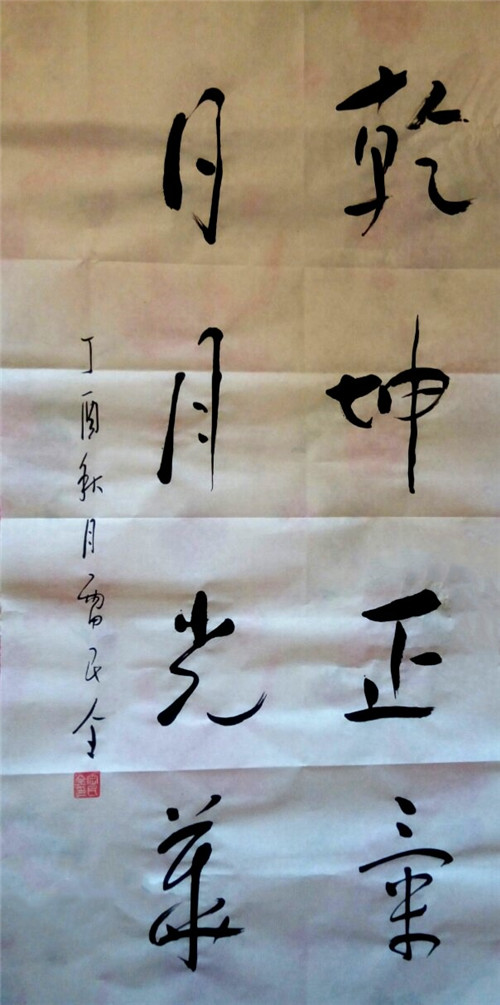 乾坤正氣
日月光華
丁酉秋月雷民全